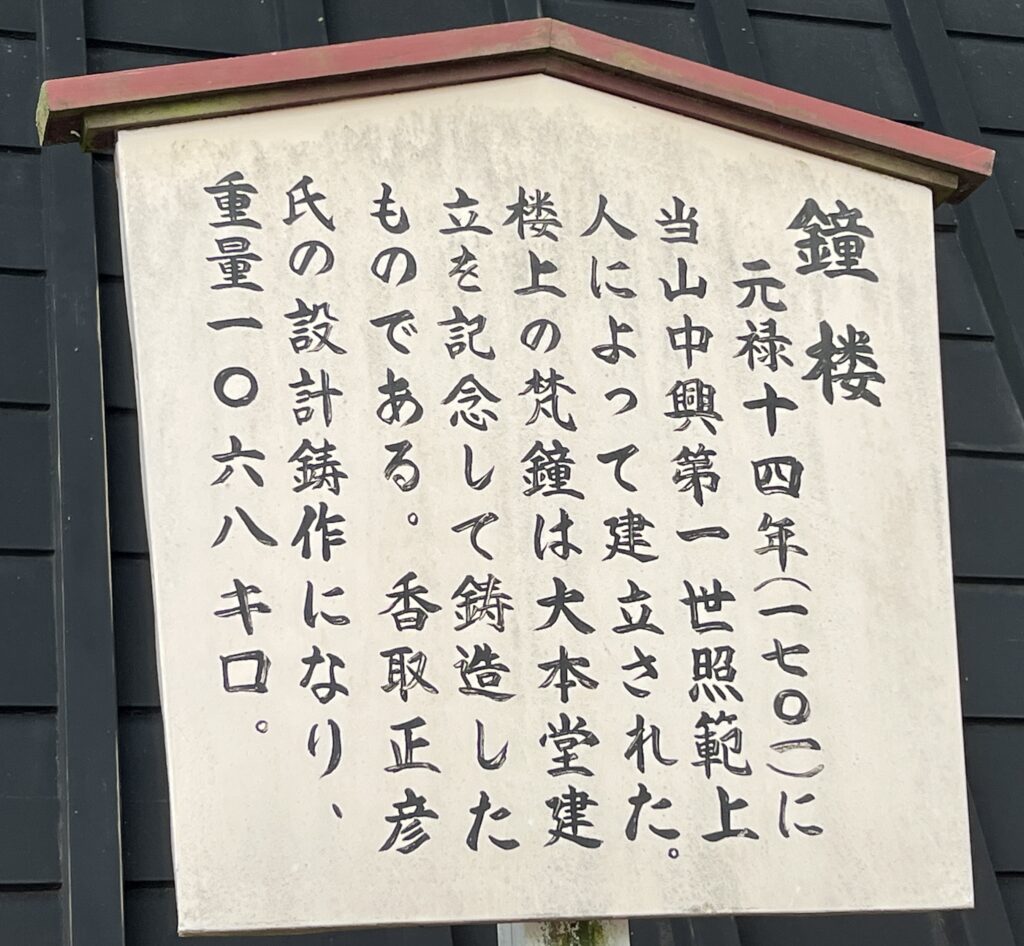 鐘楼
元禄十四年(一七〇一)に
当山中興第一世照範上
人によって建立された。
楼上の梵鐘は大本堂建
立を記念して鋳造した
ものである。香取正彦
氏の設計鋳作になり、
重量一〇六八キロ。